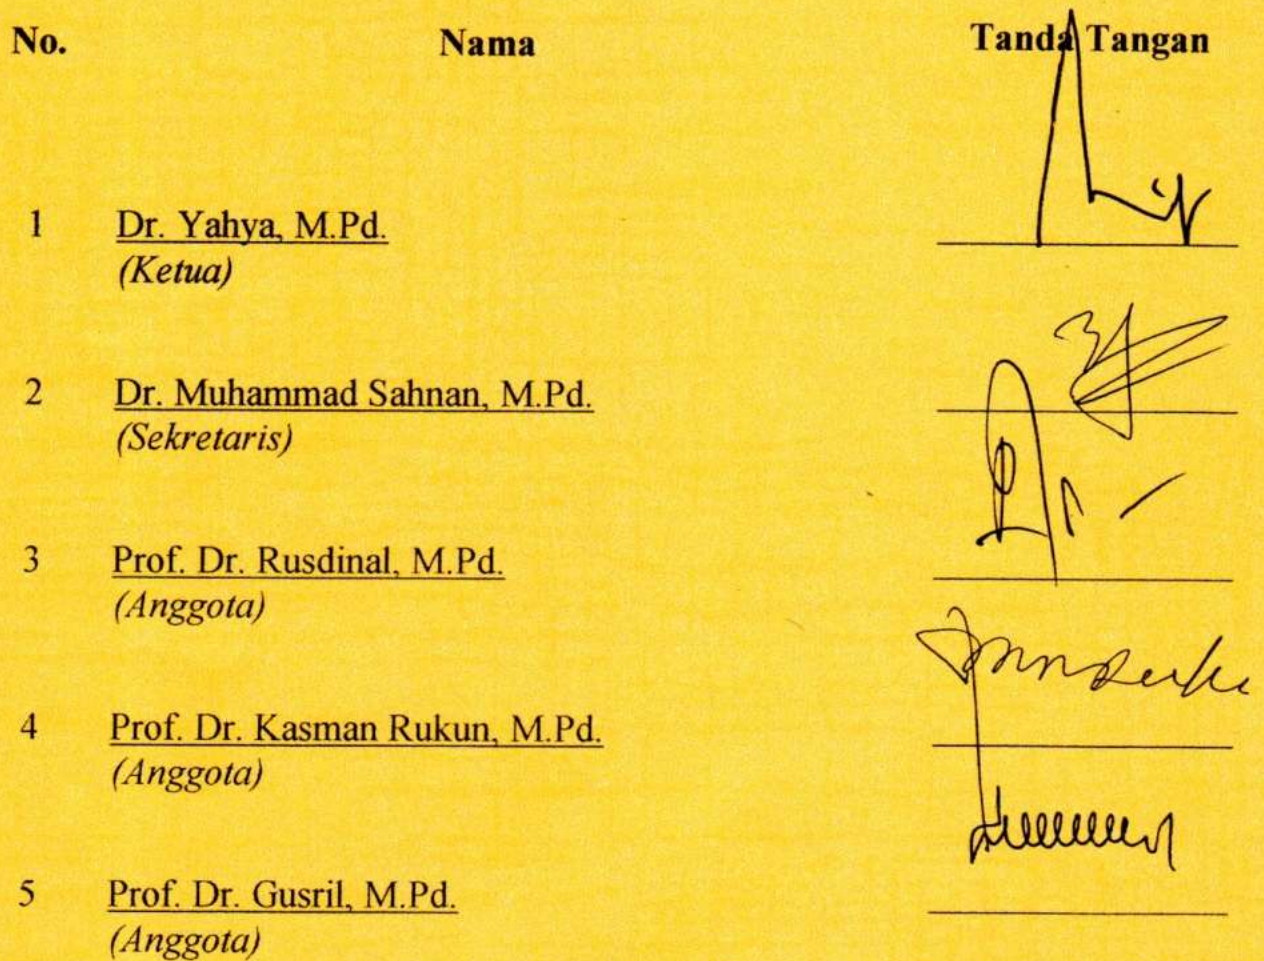 No. Nama Tanda Tangan
1 Dr. Yahya, M.Pd.
(Ketua)
2 Dr. Muhammad Sahnan, M.Pd.
(Sekretaris)
3 Prof. Dr. Rusdinal, M.Pd.
(Anggota)
4 Prof. Dr. Kasman Rukun, M.Pd.
(Anggota)
5 Prof. Dr. Gusril, M.Pd.
(Anggota)